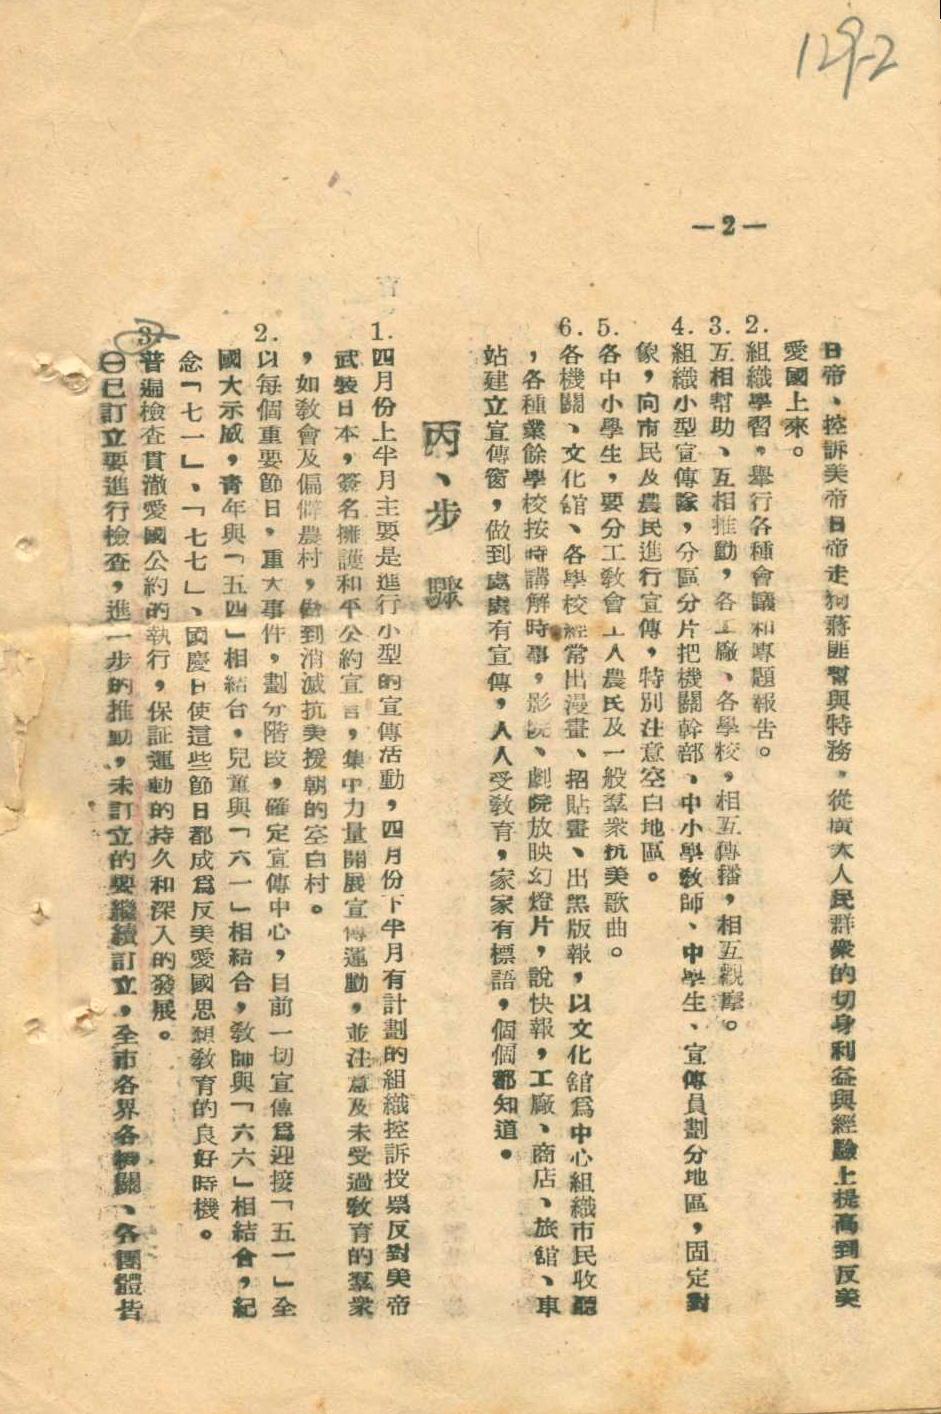 129-2
—2—
日帝、控訴美帝日帝走狗蔣匪幫與特務，從廣大人民群衆的切身利益與經驗上提高到反美
愛國上來。
2. 組織學習，舉行各種會議和專題報告。
3. 互相幫助、互相推動，各工廠、各學校，相互傳播，相互觀摩。
4. 組織小型宣傳隊，分區分片把機關幹部、中小學教師、中學生、宣傳員劃分地區，固定對
象，向市民及農民進行宣傳，特別注意空白地區。
5. 各中小學生，要分工教會工人農民及一般羣衆抗美歌曲。
6. 各機關、文化舘、各學校經常出漫畫、招貼畫、出黑版報，以文化舘爲中心組織市民收聽
，各種業餘學校按時講解時事，影院、劇院放映幻燈片，說快報，工廠、商店、旅舘、車
站建立宣傳窗，做到處處有宣傳，人人受教育，家家有標語，個個都知道。
丙、步驟
1. 四月份上半月主要是進行小型的宣傳活動，四月份下半月有計劃的組織控訴投票反對美帝
武裝日本，簽名擁護和平公約宣言，集中力量開展宣傳運動，並注意及未受過教育的羣衆
，如教會及偏僻農村，做到消滅抗美援朝的空白村。
2. 以每個重要節日，重大事件，劃分階段，確定宣傳中心，目前一切宣傳爲迎接「五一」全
國大示威，青年與「五四」相結合，兒童與「六一」相結合，教師與「六六」相結合，紀
念「七一」、「七七」、國慶日使這些節日都成爲反美愛國思想教育的良好時機。
3. 普遍檢查貫澈愛國公約的執行，保証運動的持久和深入的發展。
㊀已訂立要進行檢查，進一步的推動，未訂立的要繼續訂立，全市各界各機關、各團體皆